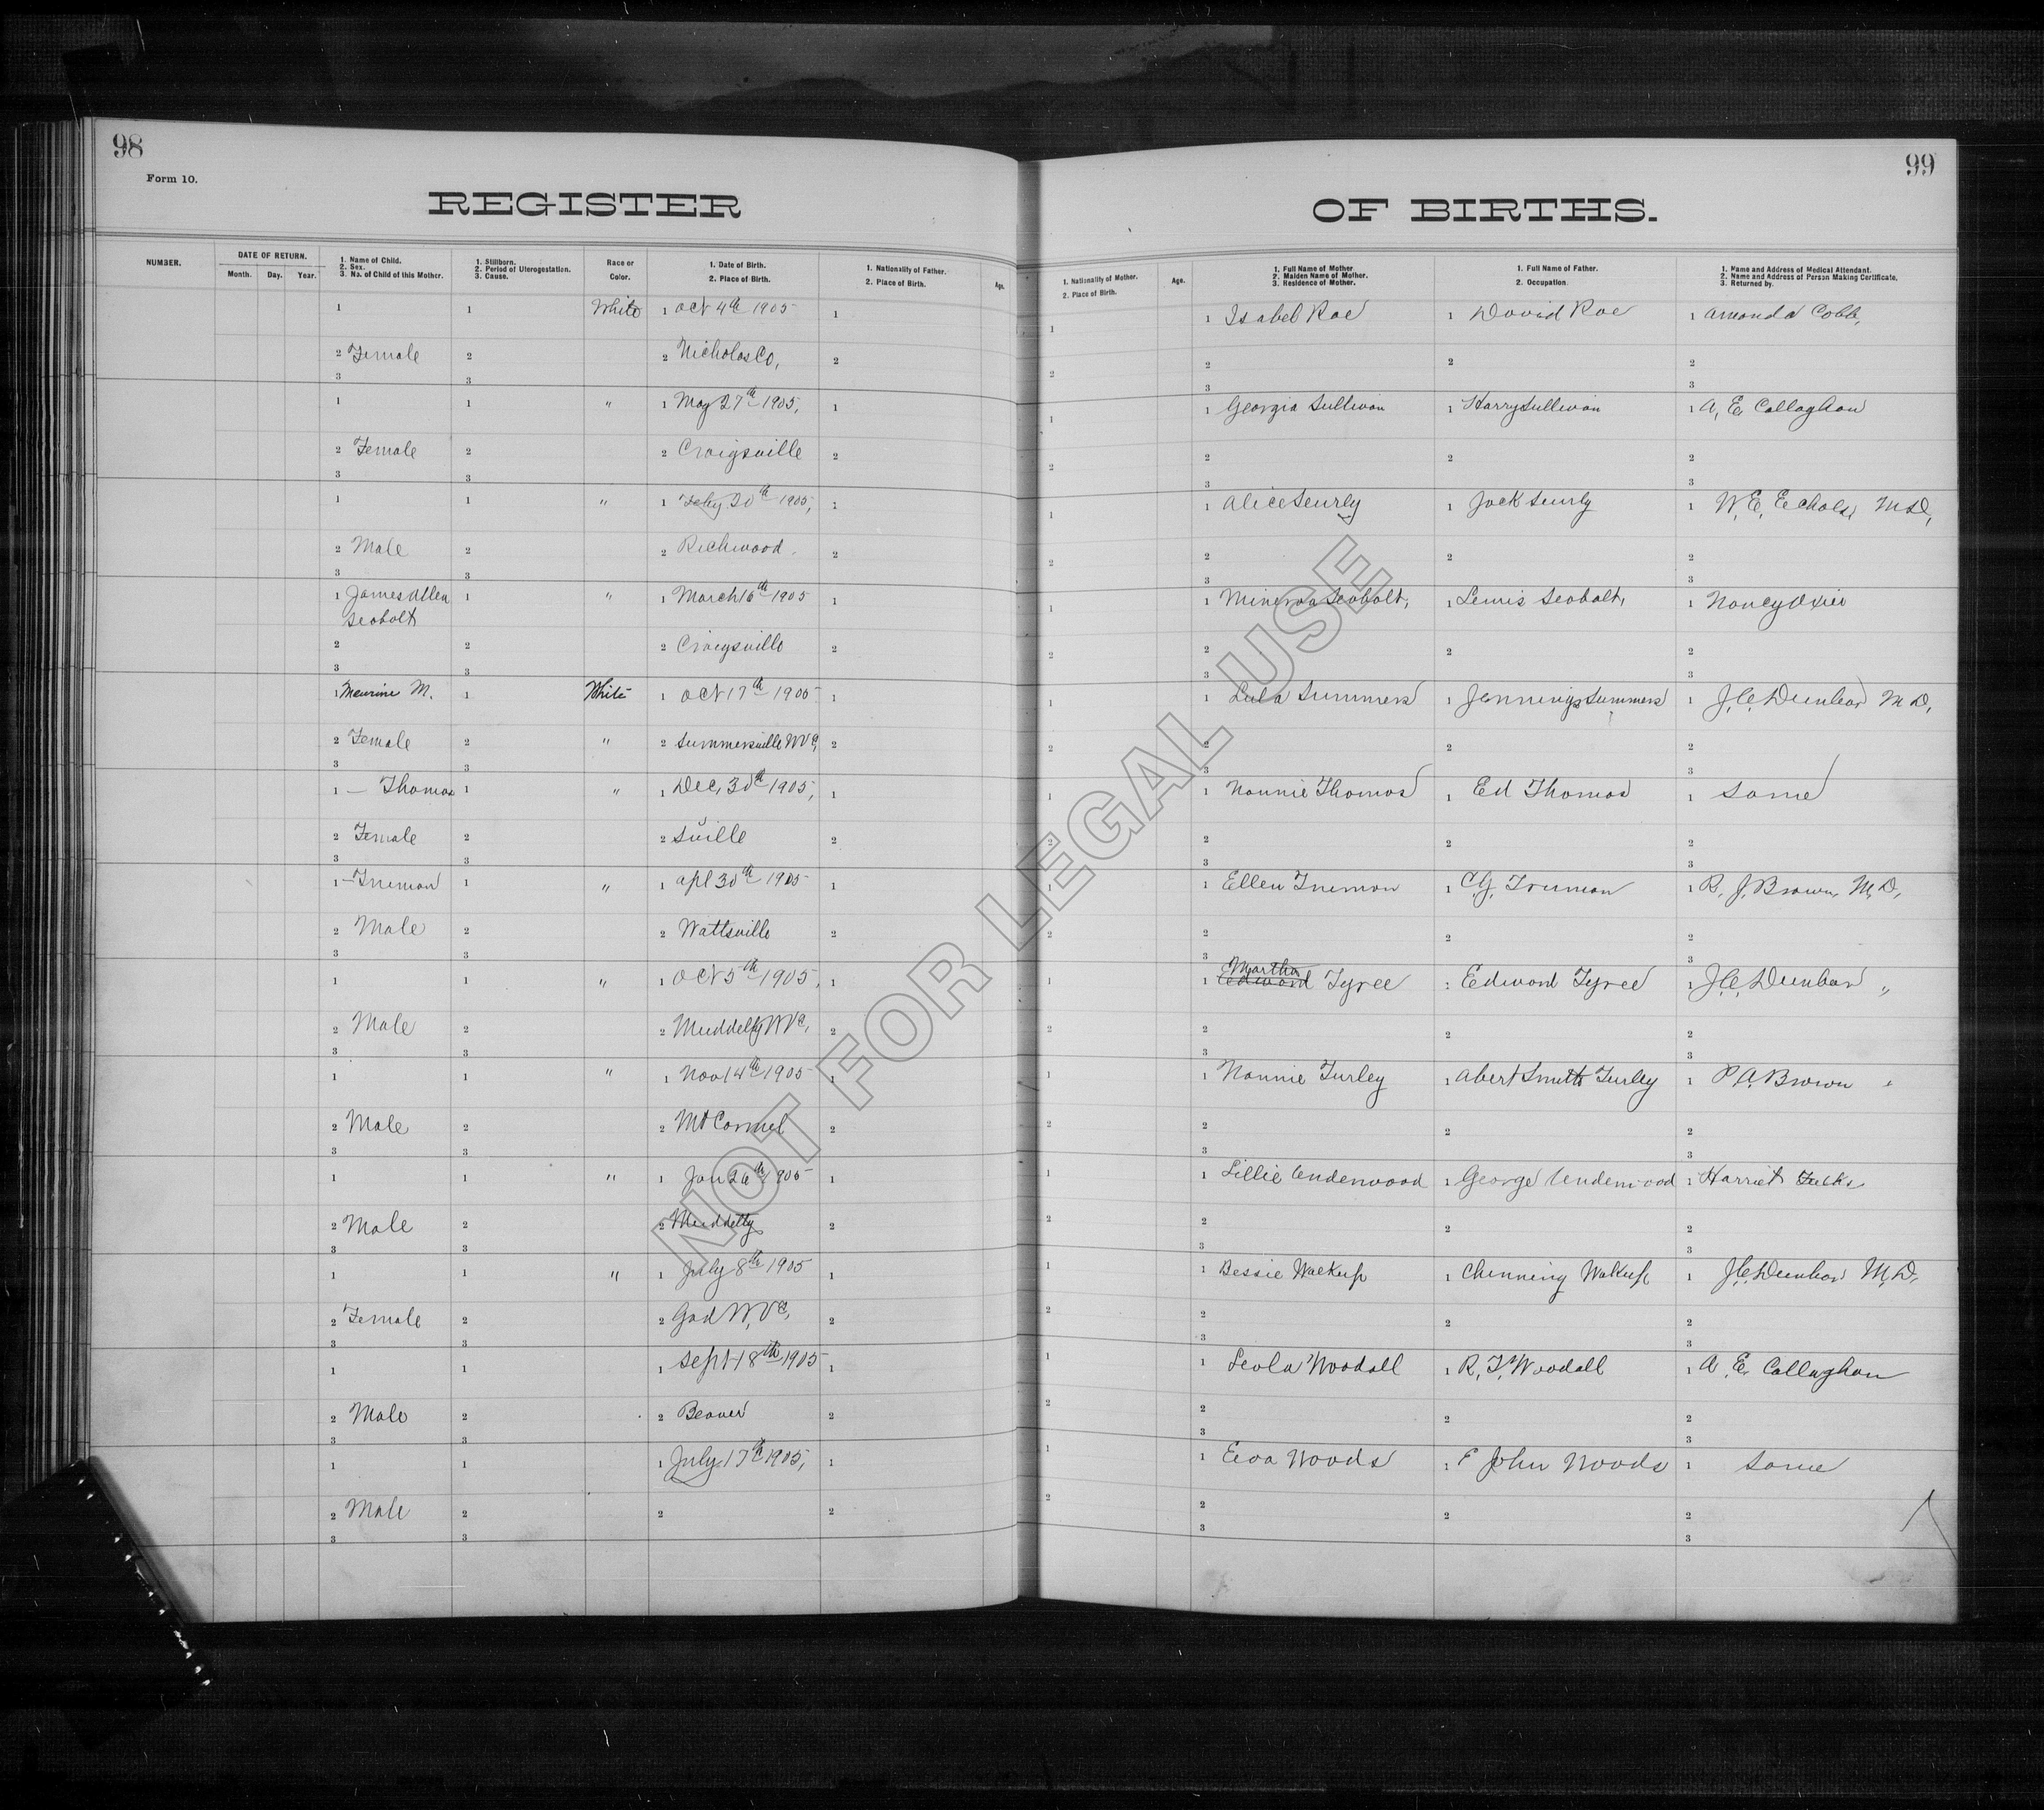 98
Form 10.
REGISTER
NUMBER.
DATE OF RETURN.
Month. Day. Year.
1. Name of Child.
2. Sex.
3. No. of Child of this Mother.
1. Stillborn.
2. Period of Uterogestation.
3. Cause.
Race or
Color.
1. Date of Birth.
2. Place of Birth.
1. Nationality of Father.
2. Place of Birth.
Age.
1 1 White 1 Oct 4th 1905 1
2 Female 2 2 Nicholas Co, 2
3 3
1 1 " 1 May 27th 1905, 1
2 Female 2 2 Craigsville 2
3 3
1 1 " 1 Feby 20th 1905, 1
2 Male 2 2 Richwood. 2
3 3
1 James Allen 1 " 1 March 16th 1905 1
Seabolt
2 2 2 Craigsville 2
3 3
1 M. 1 White 1 Oct 17th 1905 1
2 Female 2 " 2 Summersville W Va, 2
3 3
1 — Thomas 1 " 1 Dec, 30th 1905, 1
2 Female 2 2 S'ville 2
3 3
1 — Truman 1 " 1 Apl 30th 1905 1
2 Male 2 2 Wattsville 2
3 3
1 1 " 1 Oct 5th 1905, 1
2 Male 2 2 Muddelty W Va, 2
3 3
1 1 " 1 Nov 14th 1905 1
2 Male 2 2 Mt Carmel 2
3 3
1 1 " 1 Jan 26th 1905 1
2 Male 2 2 Muddelty 2
3 3
1 1 " 1 July 8th 1905 1
2 Female 2 2 Gad W, Va, 2
3 3
1 1 1 Sept 18th 1905 1
2 Male 2 2 Beaver 2
3 3
1 1 1 July 17th 1905, 1
2 Male 2 2 2
3 3
99
OF BIRTHS.
1. Nationality of Mother.
2. Place of Birth.
Age.
1. Full Name of Mother
2. Maiden Name of Mother.
3. Residence of Mother.
1. Full Name of Father.
2. Occupation.
1. Name and Address of Medical Attendant.
2. Name and Address of Person Making Certificate.
3. Returned by.
1 1 Isabel Rae 1 David Rae 1 Amanda Cobb,
2 2 2 2
3 3
1 1 Georgia Sullivan 1 Harry Sullivan 1 A, E, Callaghan
2 2 2 2
3 3
1 1 Alice 1 Jack 1 W, E, Echols, M D,
2 2 2 2
3 3
1 1 Minerva Seabolt, 1 Lewis Seabolt, 1 Nancy
2 2 2 2
3 3
1 1 Lula Summers 1 Jennings Summers 1 J, C, Dunbar M D,
2 2 2 2
3 3
1 1 Nannie Thomas 1 Ed Thomas 1 Same
2 2 2 2
3 3
1 1 Ellen Truman 1 C, G, Truman 1 R, J, Brown, M, D,
2 2 2 2
3 3
Martha
1 1 Edward Tyree 1 Edward Tyree 1 J, C, Dunbar "
2 2 2 2
3 3
1 1 Nannie Turley 1 Abert Smith Turley 1 P, A, Brown "
2 2 2 2
3 3
1 1 Lillie Underwood 1 George Underwood 1 Harriet
2 2 2 2
3 3
1 1 Bessie Wackup 1 Chenning Wakup 1 J, C, Dunbar M, D,
2 2 2 2
3 3
1 1 Leola Woodall 1 R, T, Woodall 1 A, E, Callaghan
2 2 2 2
3 3
1 1 Eva Woods 1 John Woods 1 Same
2 2 2 2
3 3
NOT FOR LEGAL USE